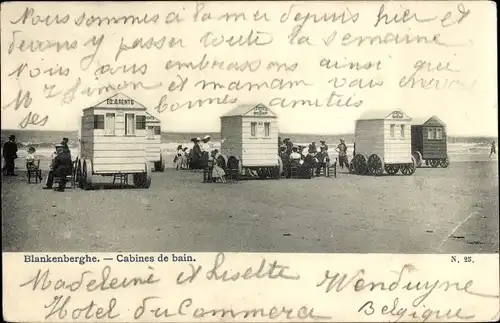 Nous sommes à la mer depuis hier et
devons y passer toute la semaine
Nous vous embrassons ainsi que
Mr Simon et maman vous envoie
ses bonnes amitiés
Blankenberghe. — Cabines de bain.
N. 25.
Madeleine et Lisette Wenduyne
Hotel du Commerce Belgique